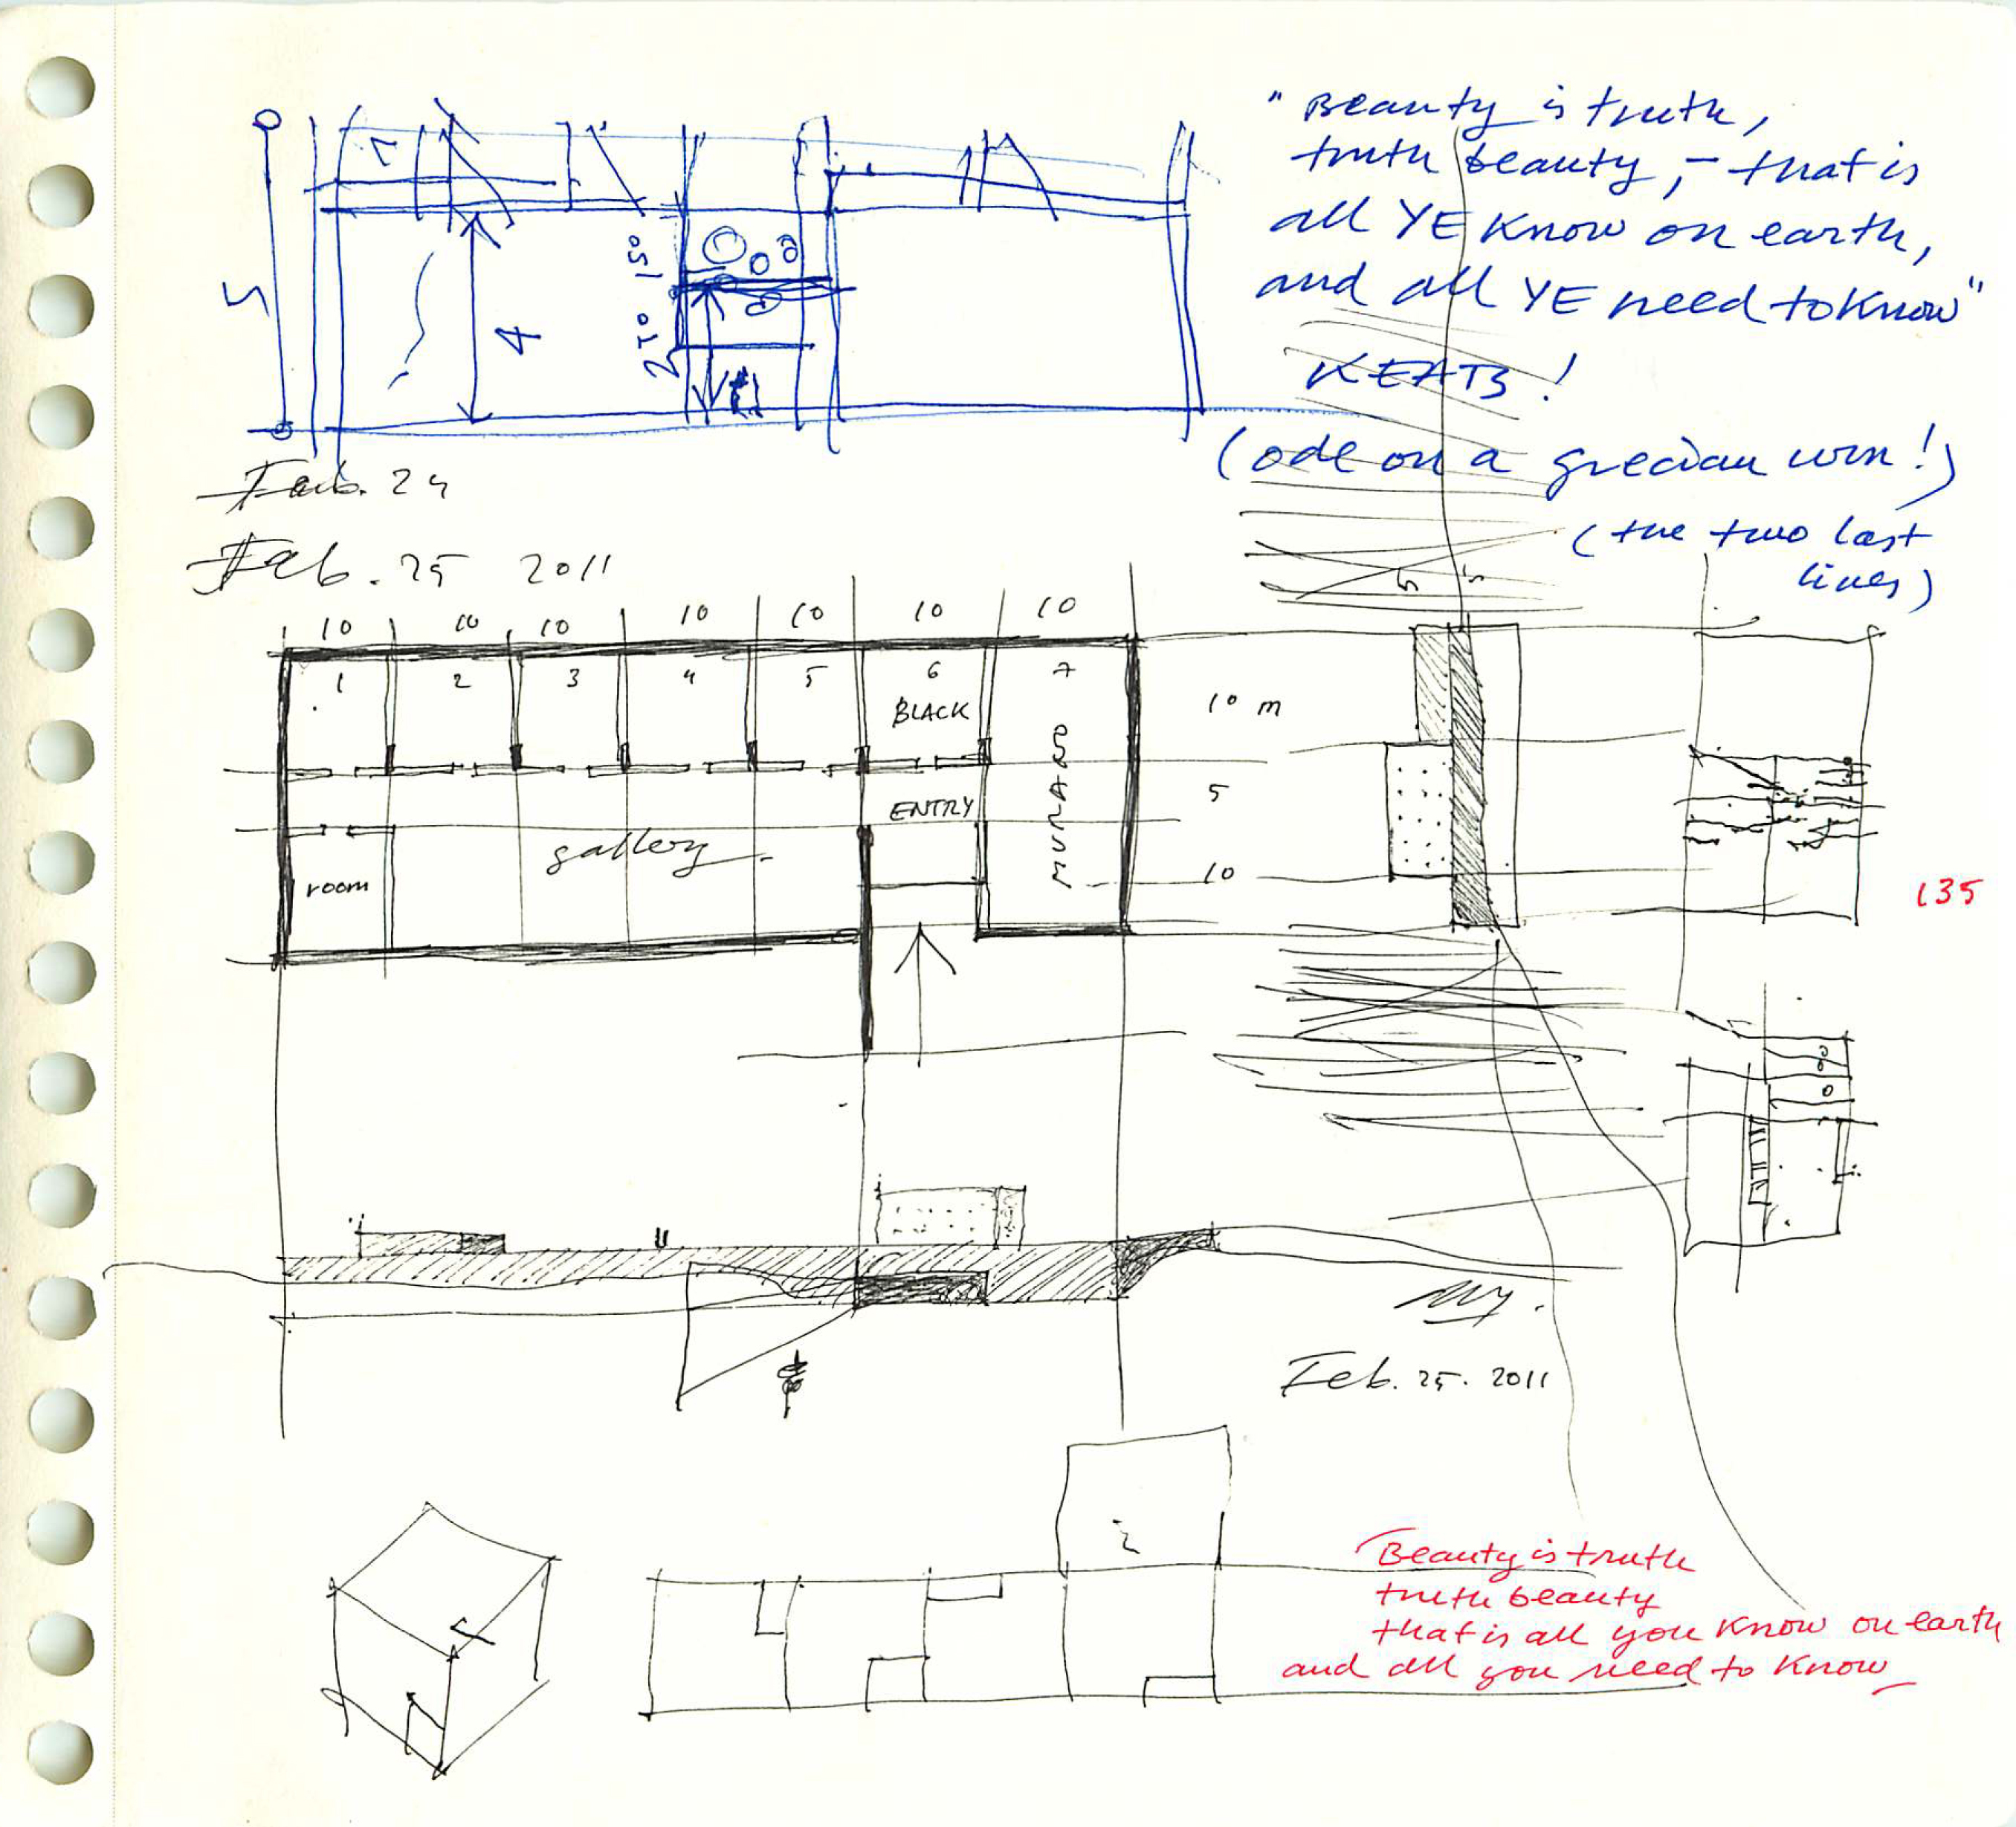 "Beauty is truth,
truth beauty, – that is
all YE know on earth,
and all YE need to know"
KEATS!
(ode on a grecian urn!)
(the two last
lines)
5
4
2 TO 150
Feb. 24
Feb. 25 2011
10 10 10 10 10 10 10
1 2 3 4 5 6 7
BLACK
MURANO
ENTRY
gallery
room
10 m
5
10
5 5
135
Feb. 25. 2011
Beauty is truth
truth beauty
that is all you know on earth
and all you need to know